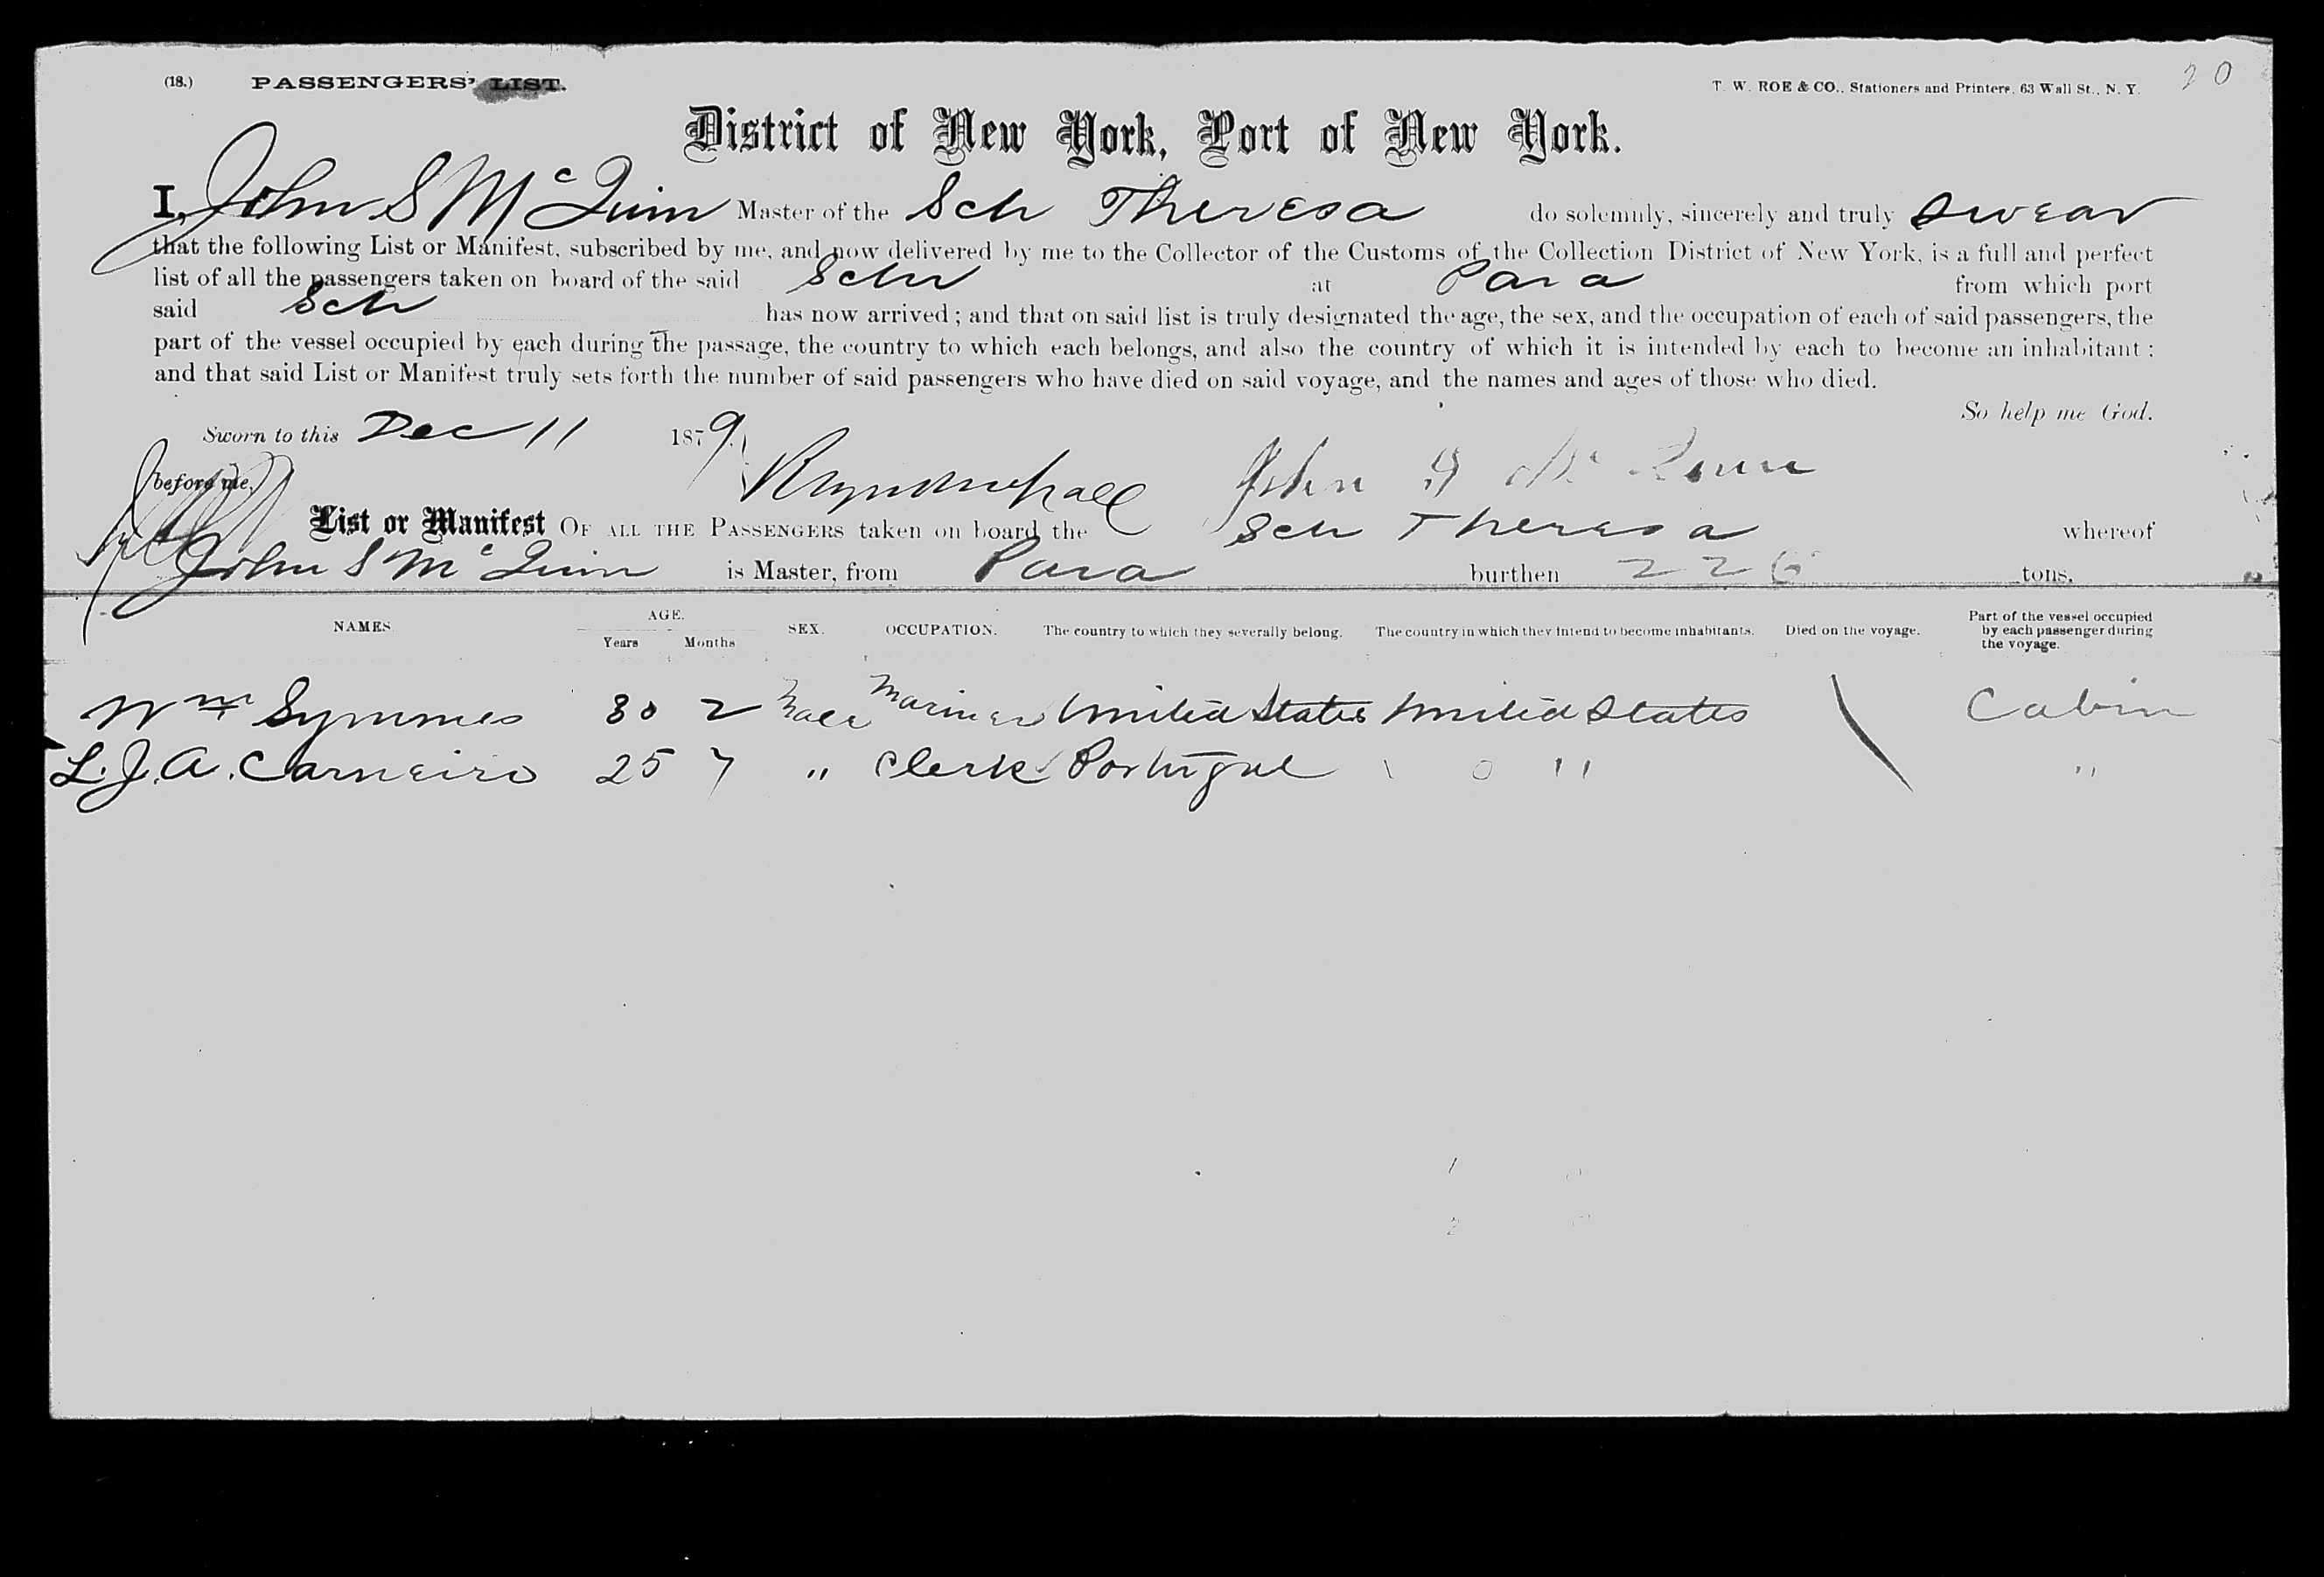 (18.) PASSENGERS' LIST. T. W. ROE & CO., Stationers and Printers, 63 Wall St., N. Y. 20
District of New York, Port of New York.
I, John S McQuinn Master of the Sch Theresa do solemnly, sincerely and truly swear
that the following List or Manifest, subscribed by me, and now delivered by me to the Collector of the Customs of the Collection District of New York, is a full and perfect
list of all the passengers taken on board of the said Schr at Para from which port
said Sch has now arrived; and that on said list is truly designated the age, the sex, and the occupation of each of said passengers, the
part of the vessel occupied by each during the passage, the country to which each belongs, and also the country of which it is intended by each to become an inhabitant;
and that said List or Manifest truly sets forth the number of said passengers who have died on said voyage, and the names and ages of those who died.
So help me God.
Sworn to this Dec 11 1879.
before me, John S McQuinn
List or Manifest OF ALL THE PASSENGERS taken on board the Sch Theresa whereof
John S McQuinn is Master, from Para burthen 226 tons.
NAMES. AGE. Years Months SEX. OCCUPATION. The country to which they severally belong. The country in which they intend to become inhabitants. Died on the voyage. Part of the vessel occupied by each passenger during the voyage.
Wm Symmes 30 2 Male Mariner United States United States Cabin
L. J. A. Carneiro 25 7 " Clerk Portugal " "